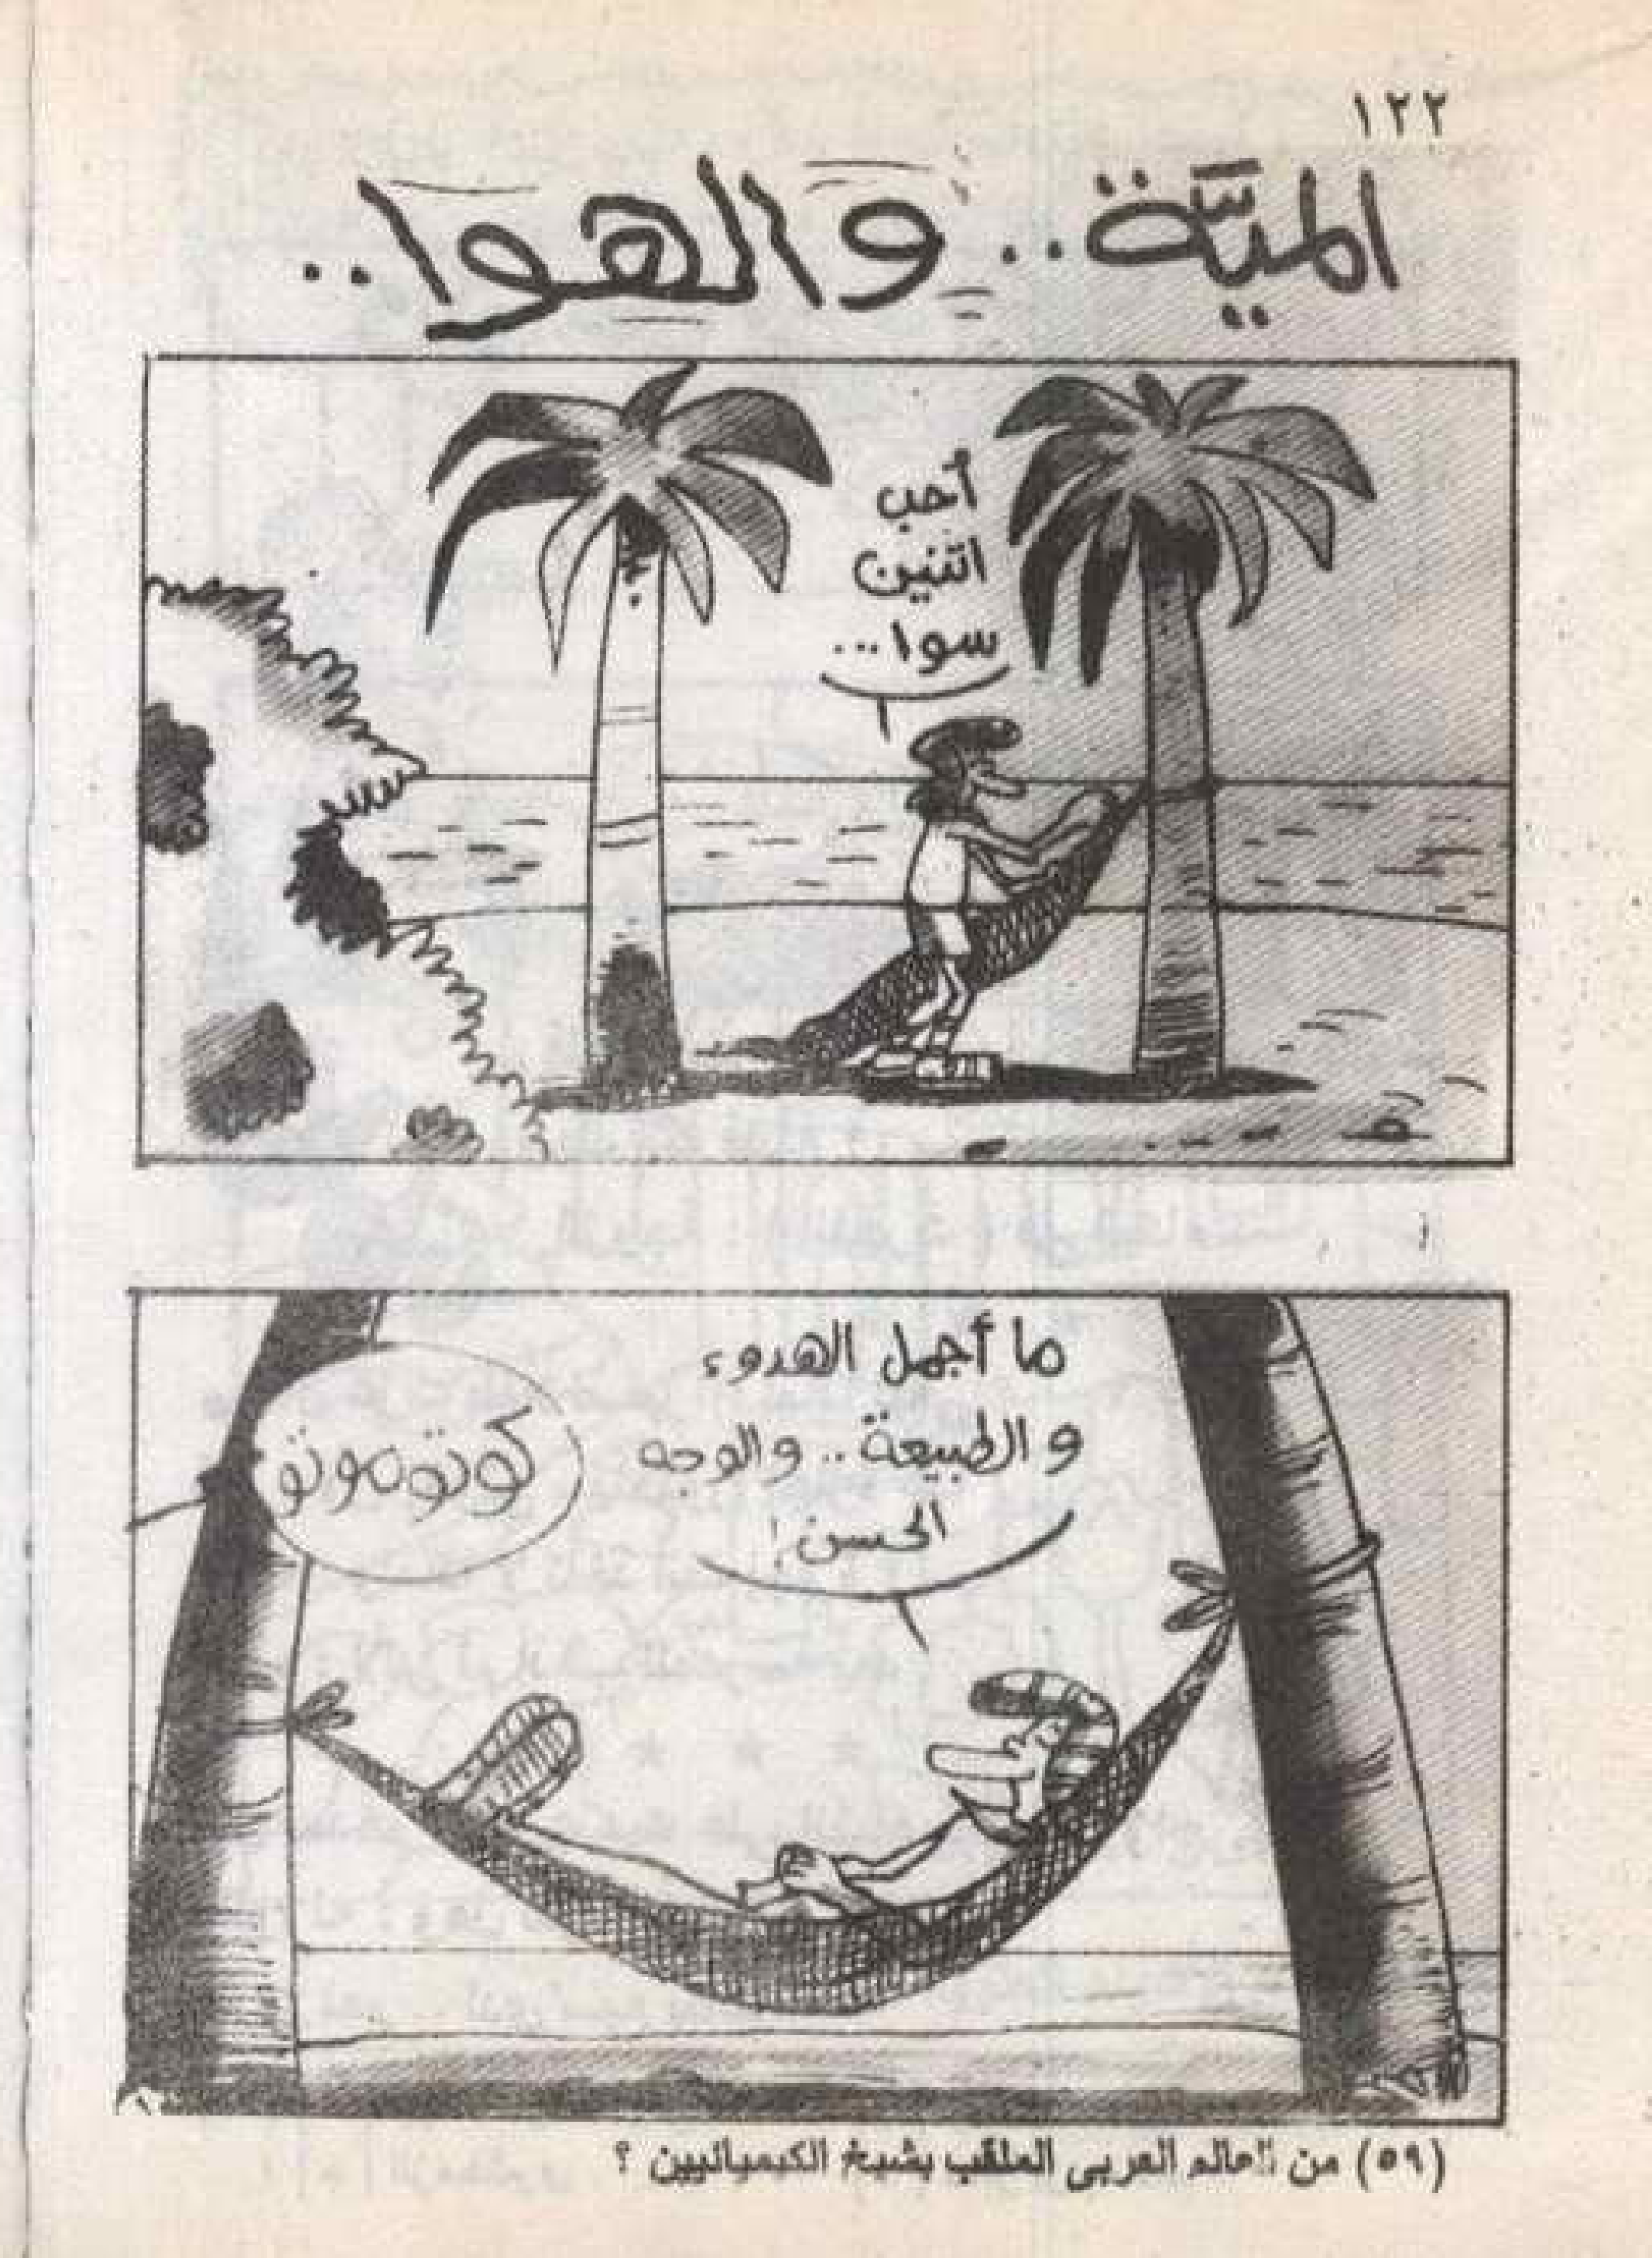 ١٢٢
الميَّة.. والهوا..
أحب
اتنين
سوا...
ما أجمل الهدوء
و الطبيعة.. والوجه
الحسن!
كوتوموتو
(٥٩) من العالم العربى الملقب بشيخ الكيميائيين ؟